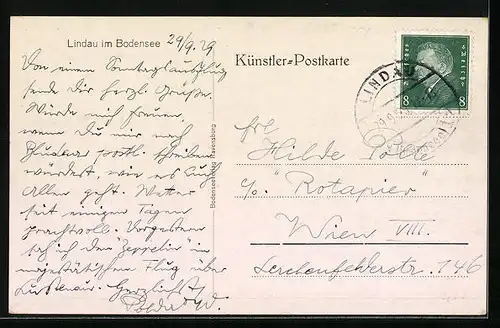 Lindau im Bodensee 29/9.29
Von einem Sonntagsausflug
sende Dir herzl. Grüße.
Würde mich freuen,
wenn Du mir nach
Bludenz postl. schreiben
würdest, wie es Euch
Allen geht. Wetter
seit einigen Tagen
prachtvoll. Vorgestern
sah ich den "Zeppelin" in
majestätischem Flug über
Lustenau. Herzlichst
Bodensee Ravensburg
Künstler=Postkarte
8 8
LINDAU
Frl.
Hilde
c/o "Rotapier"
Wien VIII.
Lerchenfelderstr. 146